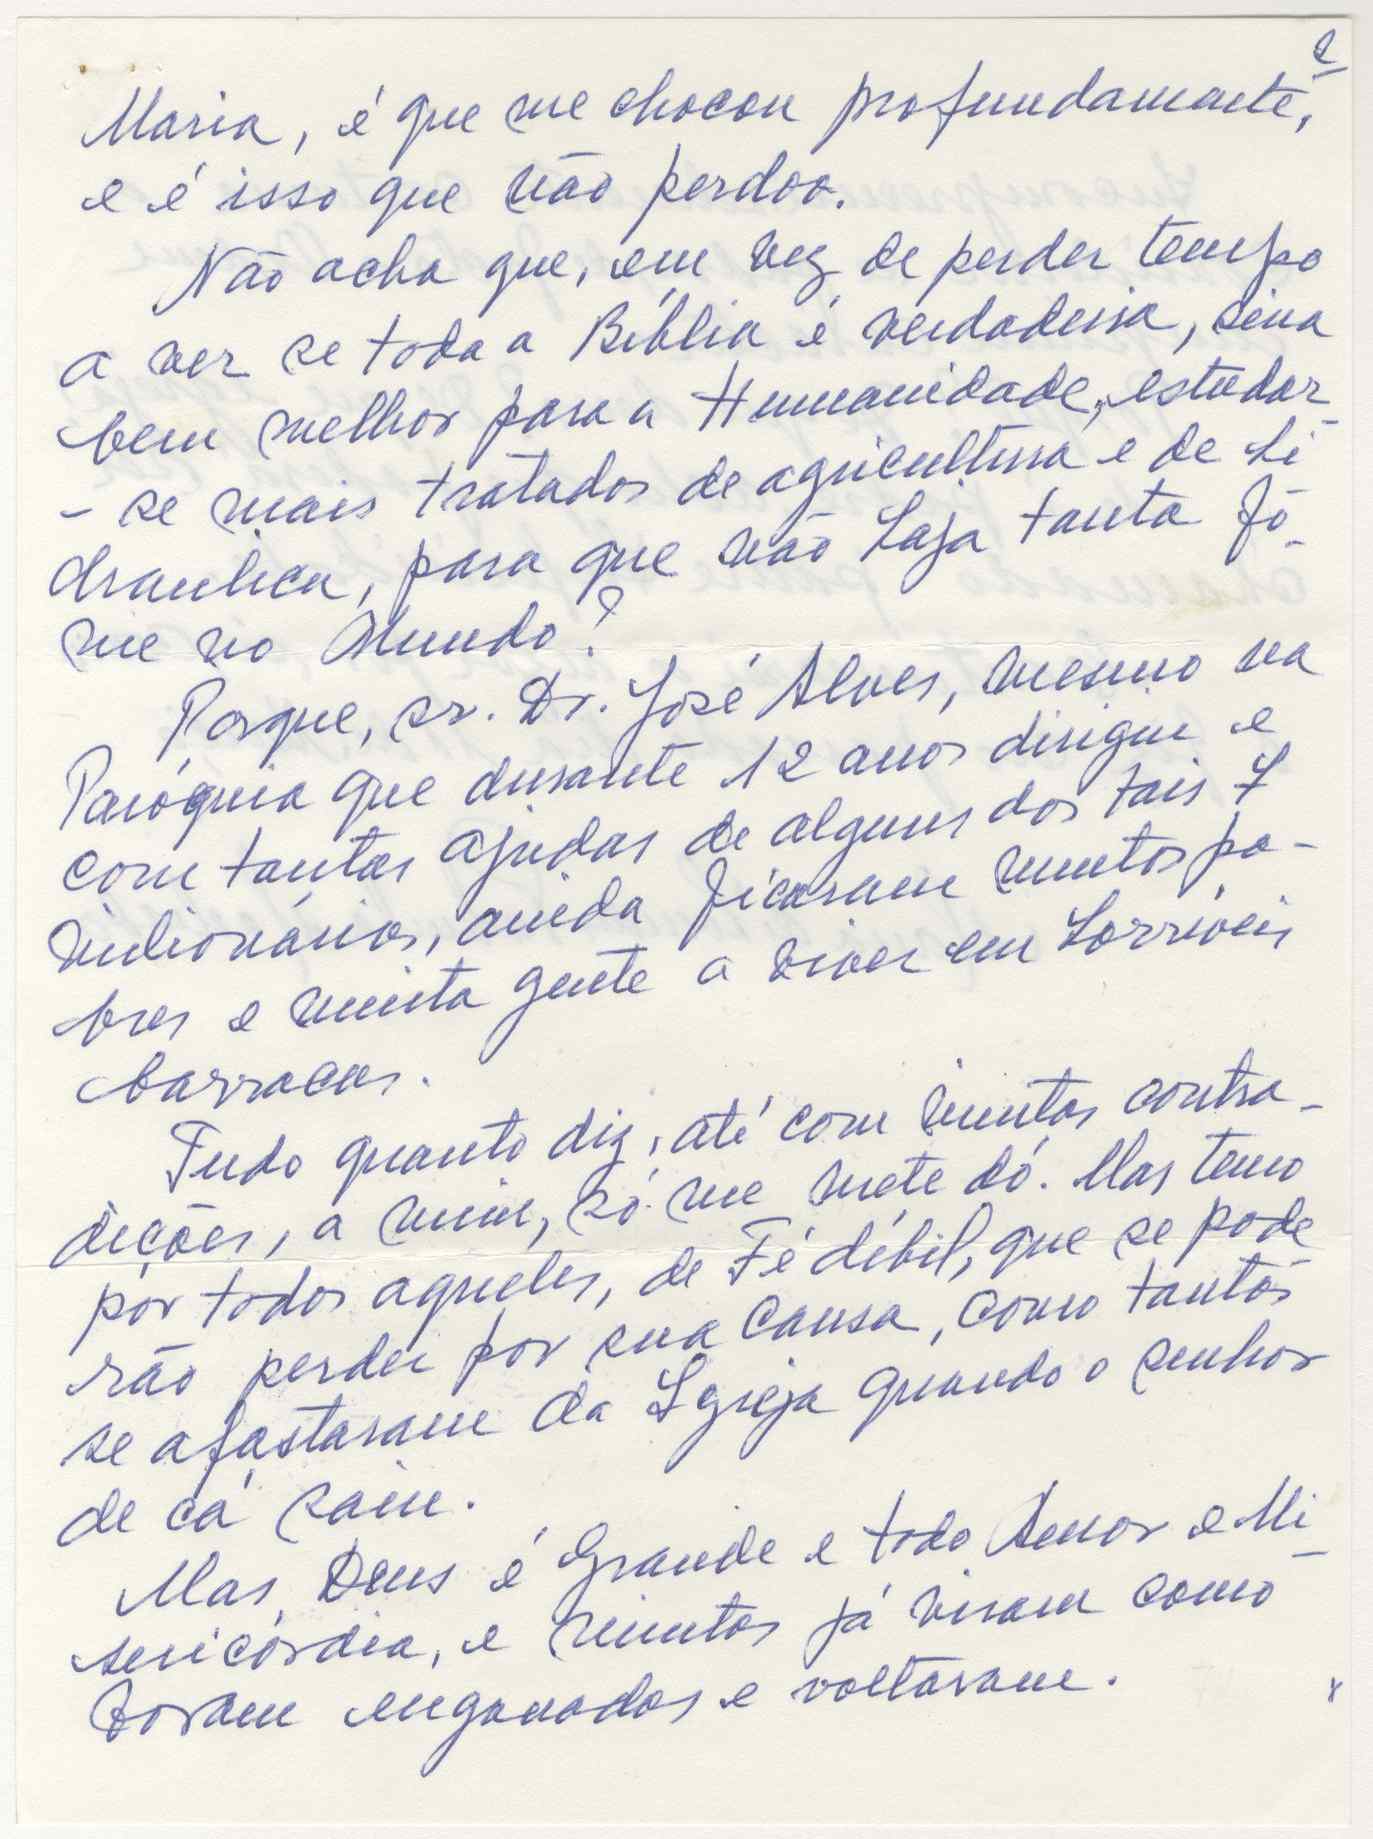 2
Maria, é que me chocou profundamente,
e é isso que não perdoo.
Não acha que, em vez de perder tempo
a ver se toda a Bíblia é verdadeira, seria
bem melhor para a Humanidade, estudar-
- se mais tratados de agricultura e de hi-
draulica, para que não haja tanta fó-
me no Mundo?
Porque, sr. Dr. José Alves, mesmo na
Paróquia que durante 12 anos dirigiu e
com tantas ajudas de alguns dos tais 7
milionários, ainda ficaram muitos po-
bres e muita gente a viver em horríveis
barracas.
Tudo quanto diz, até com muitas contra-
dições, a mim, só me mete dó. Mas temo
por todos aqueles, de Fé débil, que se pode-
rão perder por sua causa, como tantos
se afastaram da Igreja quando o senhor
de cá saiu.
Mas, Deus é Grande e todo Amor e Mi-
sericórdia, e muitos já viram como
foram enganados e voltaram.
x